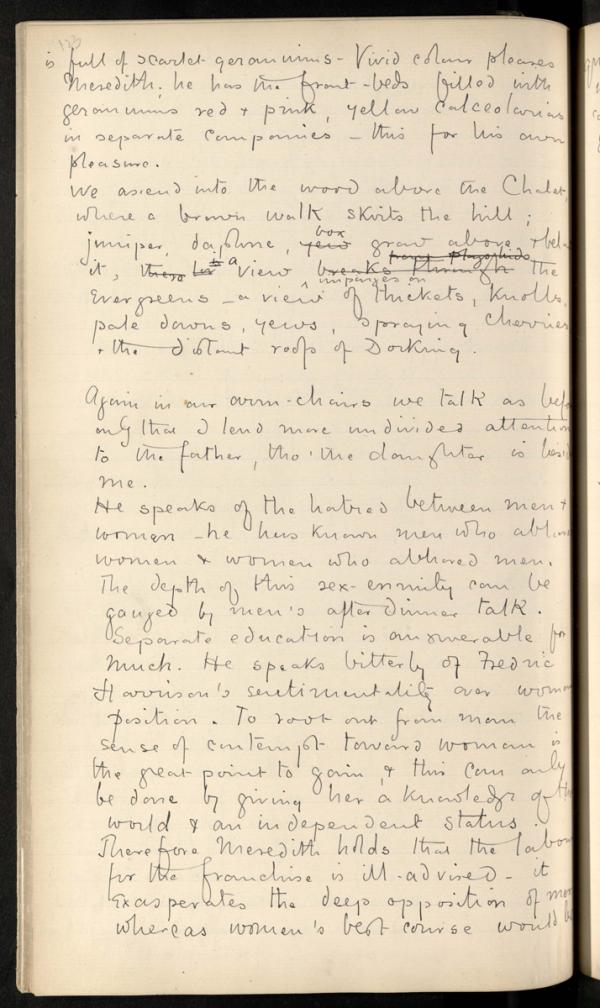 123
is full of scarlet geraniums - Vivid colour pleases
Meredith; he has the front-beds filled with
geraniums red & pink, yellow calceolarias
in separate companies - this for his own
pleasure.
We ascend into the wood above the Chalet,
where a brown walk skirts the hill;
juniper, daphne, yew box grow above & bel
it, there is a view breaks through from playfields impinges on the
Evergreens - a view of thickets, knolls,
pale downs, yews, spraying cherries
& the distant roofs of Dorking.
Again in our arm-chairs we talk as bef
only that I lend more undivided attention
to the father, tho' the daughter is besi
me.
He speaks of the hatred between men &
women - he has known men who abho
women & women who abhored men.
The depth of this sex-enmity can be
gauged by men's after dinner talk.
Separate education is answerable for
much. He speaks bitterly of Fredric
Harrison's sentimentality over woman
position. To root out from man the
sense of contempt toward woman is
the great point to gain, & this can only
be done by giving her a knowledge of th
world & an independent status.
Therefore Meredith holds that the labour
for the franchise is ill-advised - it
exasperates the deep opposition of men
whereas women's best course would b